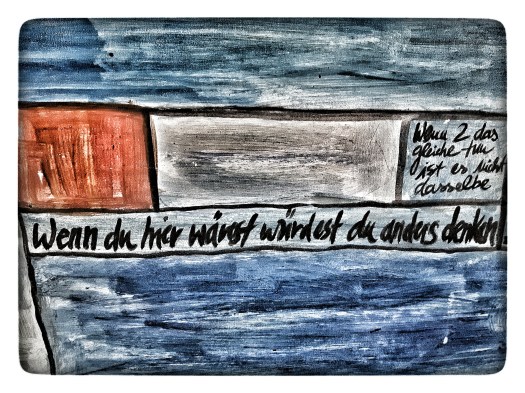 Wenn 2 das
gleiche tun
ist es nicht
dasselbe
Wenn du hier wärest würdest du anders denken